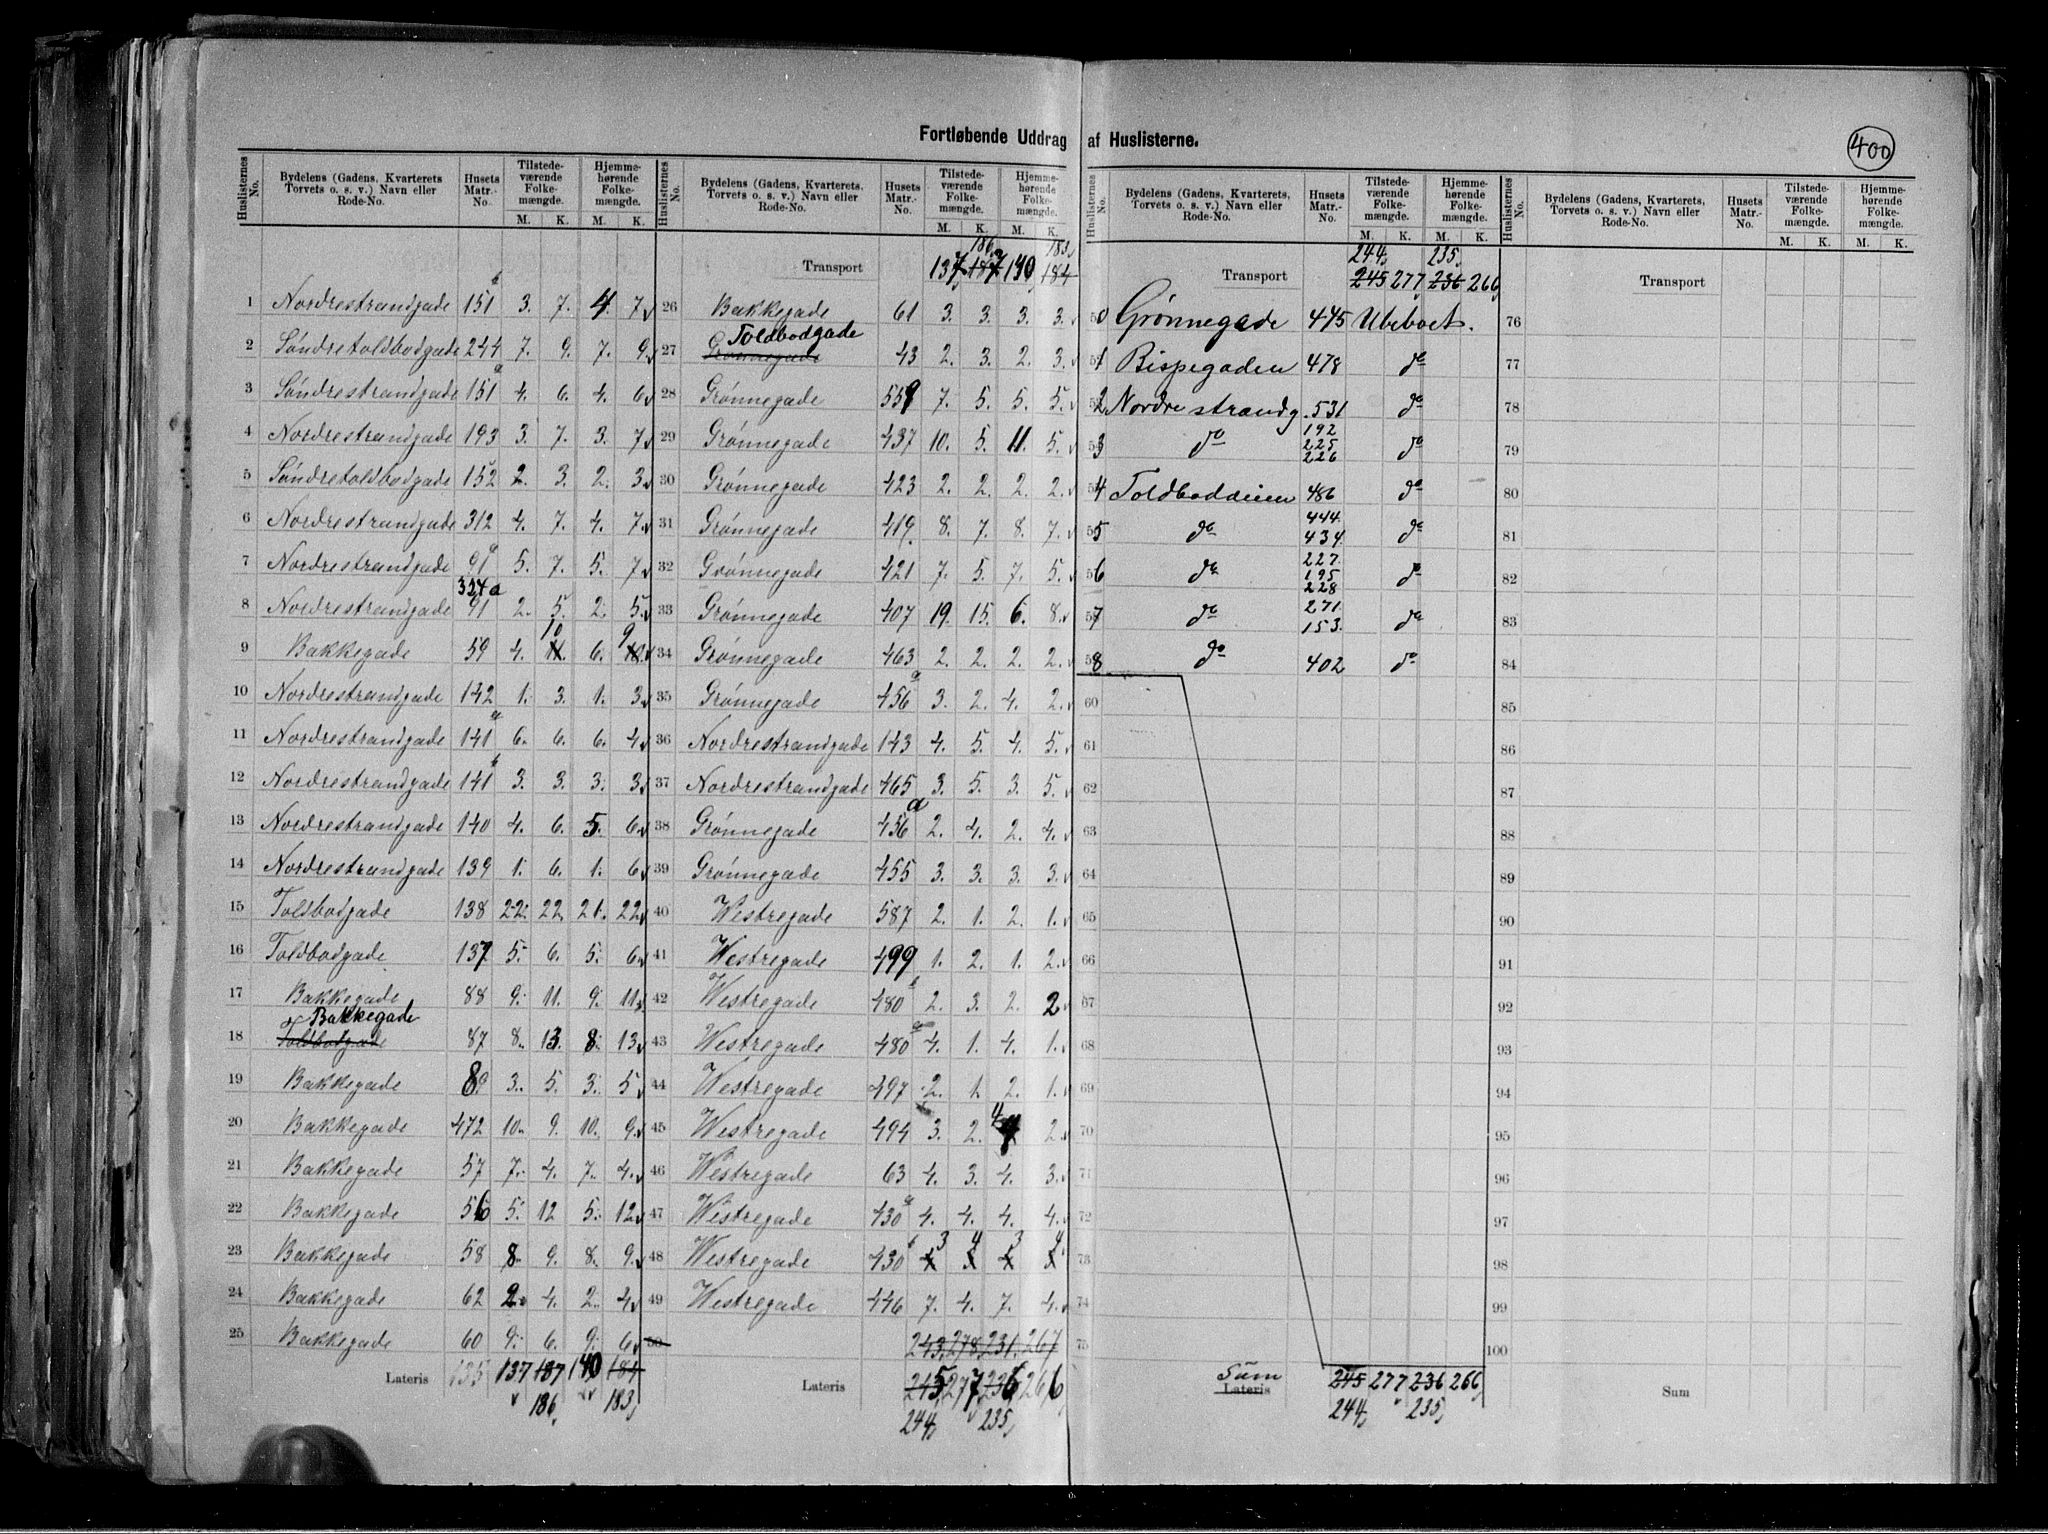 Fortløbende Uddrag af Huslisterne.
400
Huslisternes No. | Bydelens (Gadens, Kvarterets, Torvets o. s. v.) Navn eller Rode-No. | Husets Matr.-No. | Tilstedeværende Folkemængde. M. K. | Hjemmehørende Folkemængde. M. K.
1 Nordrestrandgade 151 b 3. 7. 4. 7
2 Søndretoldbodgade 244 7. 9. 7. 9
3 Søndrestrandgade 151 a 4. 6. 4. 6
4 Nordrestrandgade 193 3. 7. 3. 7
5 Søndretoldbodgade 152 2. 3. 2. 3
6 Nordrestrandgade 312 4. 7. 4. 7
7 Nordrestrandgade 91 a 5. 7. 5. 7
8 Nordrestrandgade 334a 91 2. 5. 2. 5
9 Bakkegade 59 4. 11. 10 6. 10. 9
10 Nordrestrandgade 142 1. 3. 1. 3
11 Nordrestrandgade 141 a 6. 6. 6. 4
12 Nordrestrandgade 141 b 3. 3. 3. 3
13 Nordrestrandgade 140 4. 6. 5. 6
14 Nordrestrandgade 139 1. 6. 1. 6
15 Toldbodgade 138 22. 22. 21. 22
16 Toldbodgade 137 5. 6. 5. 6
17 Bakkegade 88 9. 11. 9. 11
18 Toldbodgade Bakkegade 87 8. 13. 8. 13
19 Bakkegade 89 3. 5. 3. 5
20 Bakkegade 472 10. 9. 10. 9
21 Bakkegade 57 7. 4. 7. 4
22 Bakkegade 56 5. 12 5. 12
23 Bakkegade 58 8. 9. 8. 9
24 Bakkegade 62 2. 4. 2. 4
25 Bakkegade 60 9. 6. 9. 6
Lateris 135 137 187 140 184
186 183
Huslisternes No. | Bydelens (Gadens, Kvarterets, Torvets o. s. v.) Navn eller Rode-No. | Husets Matr.-No. | Tilstedeværende Folkemængde. M. K. | Hjemmehørende Folkemængde. M. K.
186 183
Transport 137 187 140 184
26 Bakkegade 61 3. 3. 3. 3
27 Grønnegade Toldbodgade 43 2. 3. 2. 3
28 Grønnegade 559 7. 5. 5. 5
29 Grønnegade 437 10. 5. 11. 5
30 Grønnegade 423 2. 2. 2. 2
31 Grønnegade 419 8. 7. 8. 7
32 Grønnegade 421 7. 5. 7. 5
33 Grønnegade 407 19. 15. 6. 8
34 Grønnegade 463 2. 2. 2. 2
35 Grønnegade 456 a 3. 2. 4. 2
36 Nordrestrandgade 143 4. 5. 4. 5
37 Nordrestrandgade 465 3. 5. 3. 5
38 Grønnegade 456 a 2. 4. 2. 4
39 Grønnegade 455 3. 3. 3. 3
40 Westregade 587 2. 1. 2. 1
41 Westregade 499 1. 2. 1. 2
42 Westregade 480 b 2. 3. 2. 2
43 Westregade 480 a 4. 1. 4. 1
44 Westregade 497 2. 1. 2. 1
45 Westregade 494 3. 2. 4 2
46 Westregade 63 4. 3. 4. 3
47 Westregade 430 a 4. 4. 4. 4
48 Westregade 430 b 3 4 3 4
49 Westregade 446 7. 4. 7. 4
50 243. 278. 231. 267
Lateris 245 277 236 266
244 235
Huslisternes No. | Bydelens (Gadens, Kvarterets, Torvets o. s. v.) Navn eller Rode-No. | Husets Matr.-No. | Tilstedeværende Folkemængde. M. K. | Hjemmehørende Folkemængde. M. K.
244 235
Transport 245 277 236 266
50 Grønnegade 475 Ubeboet.
51 Bispegaden 478 do
52 Nordre strandg. 531 do
53 do 192 225 226 do
54 Toldboddeien 486 do
55 do 444 434 do
56 do 227 195 228 do
57 do 271 153 do
58 do 402 do
60
61
62
63
64
65
66
67
68
69
70
71
72
73
74
75
Sum
Lateris 245 277 236 266
244 235
Huslisternes No. | Bydelens (Gadens, Kvarterets, Torvets o. s. v.) Navn eller Rode-No. | Husets Matr.-No. | Tilstedeværende Folkemængde. M. K. | Hjemmehørende Folkemængde. M. K.
Transport
76
77
78
79
80
81
82
83
84
85
86
87
88
89
90
91
92
93
94
95
96
97
98
99
100
Sum